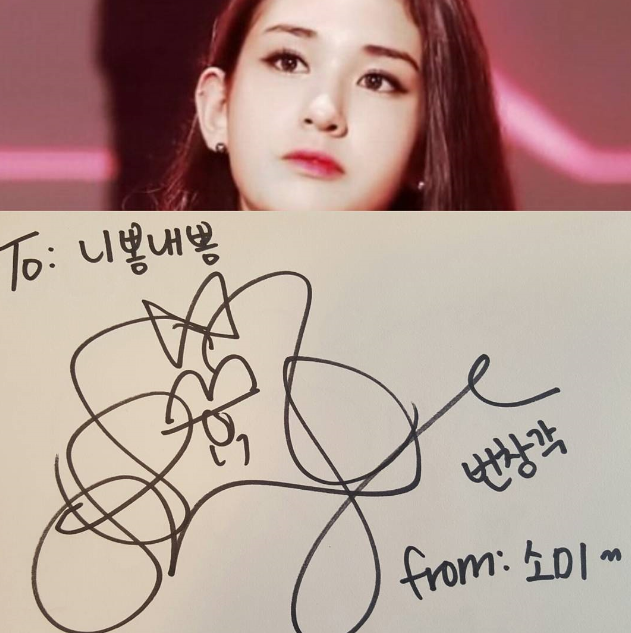 To: 니뽕내뽕
번창각
from: 소미~